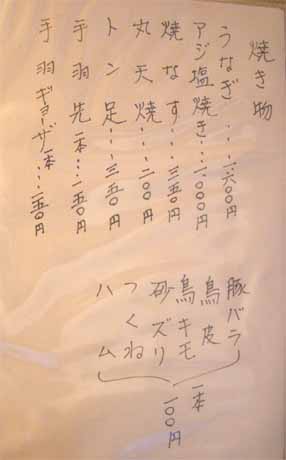 焼き物
うなぎ・・・一六〇〇円
アジ塩焼き・・・一〇〇〇円
焼なす・・・三五〇円
丸天焼・・・二〇〇円
トン足・・・三五〇円
手羽先一本・・・一五〇円
手羽ギョーザ一本・・・二五〇円
豚バラ
鳥皮
鳥キモ
砂ズリ
つくね
ハム
一本
一〇〇円